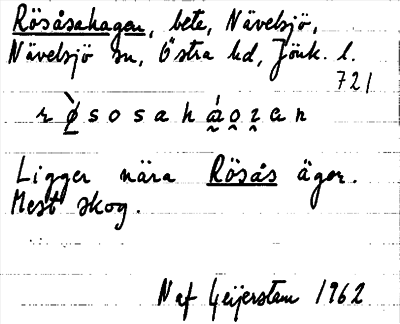 Rösåsahagen, bete, Nävelsjö,
Nävelsjö sn, Östra hd, Jönk. l.
721
Ligger nära Rösås äger.
Mest skog.
N af Geijerstam 1962